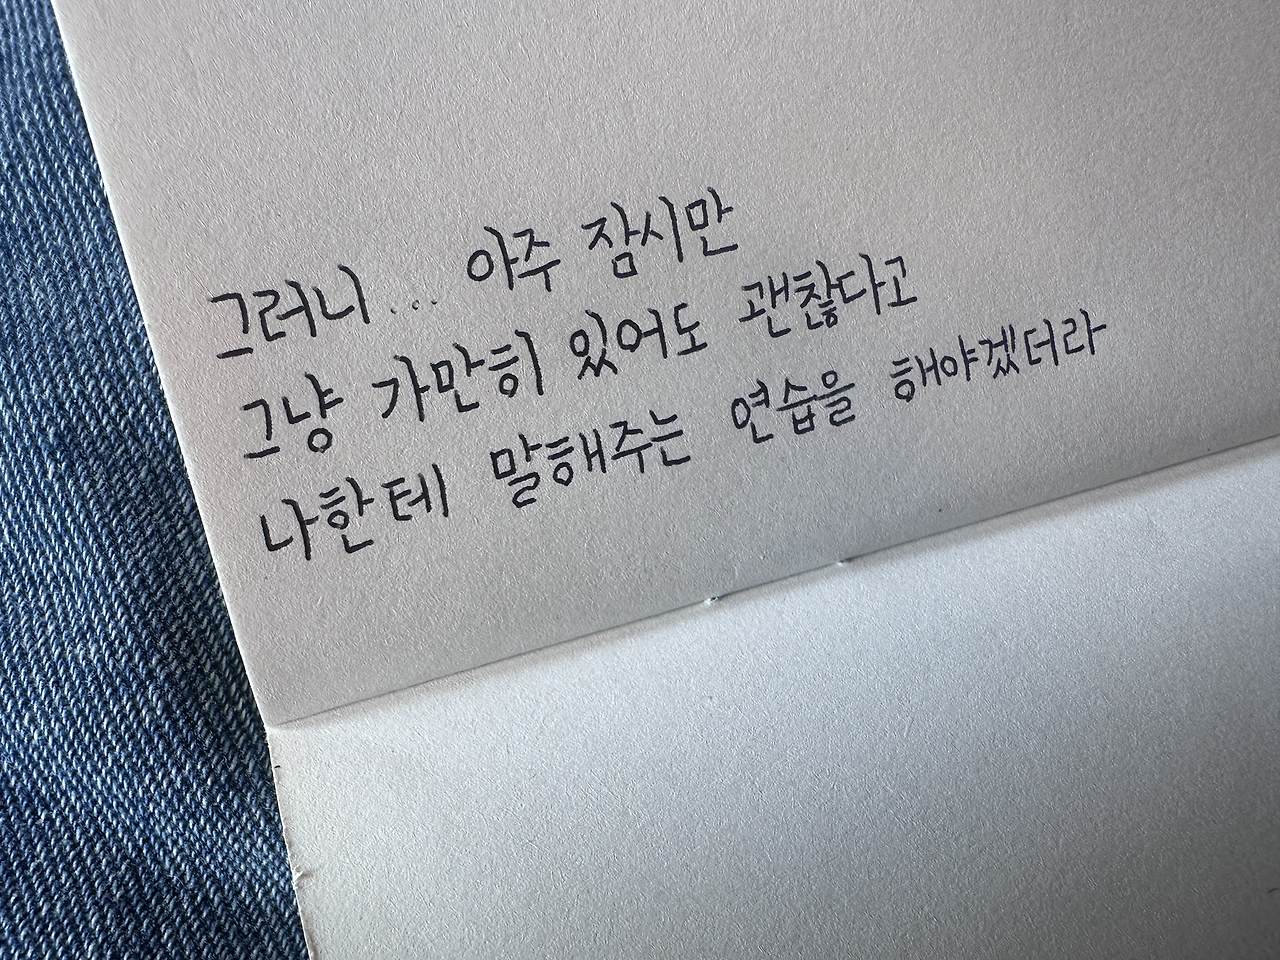 그러니... 아주 잠시만
그냥 가만히 있어도 괜찮다고
나한테 말해주는 연습을 해야겠더라